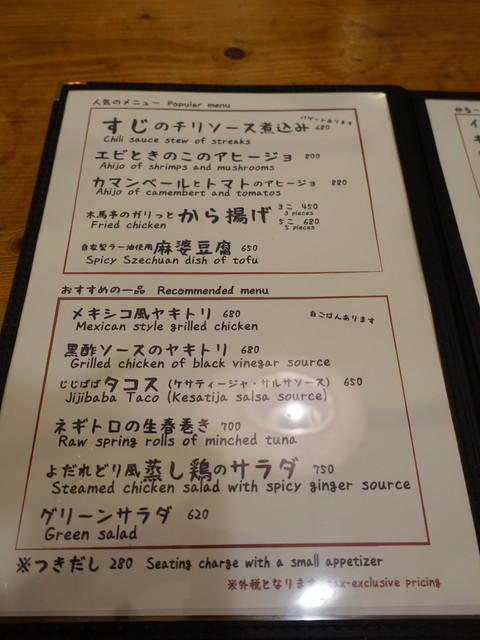 人気のメニュー Popular menu
すじのチリソース煮込み 680 バゲットあります
Chili sauce stew of streaks
エビときのこのアヒージョ 800
Ahijo of shrimps and mushrooms
カマンベールとトマトのアヒージョ 880
Ahijo of camembert and tomatos
木馬亭のガリっとから揚げ 3こ 450
Fried chicken 3 pieces
5こ 680
5 pieces
自家製ラー油使用 麻婆豆腐 650
Spicy Szechuan dish of tofu
おすすめの一品 Recommended menu
メキシコ風ヤキトリ 680 白ごはんあります
Mexican style grilled chicken
黒酢ソースのヤキトリ 680
Grilled chicken of black vinegar source
じじばばタコス (ケサティージャ・サルサソース) 650
Jijibaba Taco (Kesatija salsa source)
ネギトロの生春巻き 700
Raw spring rolls of minched tuna
よだれどり風蒸し鶏のサラダ 750
Steamed chicken salad with spicy ginger source
グリーンサラダ 620
Green salad
※つきだし 280 Seating charge with a small appetizer
※外税となります tax-exclusive pricing